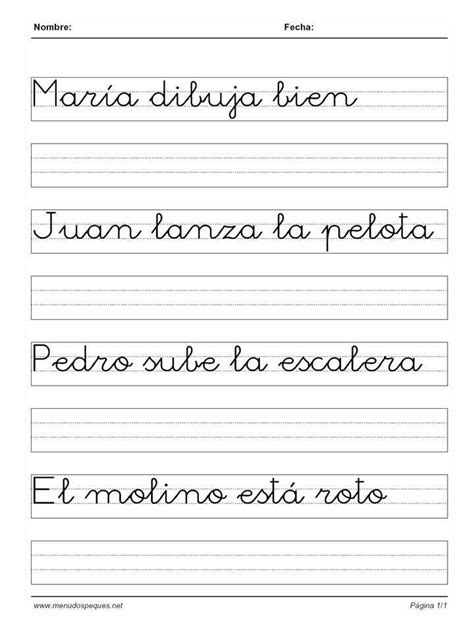 Nombre: Fecha:
María dibuja bien
Juan lanza la pelota
Pedro sube la escalera
El molino está roto
www.menudospeques.net Página 1/1